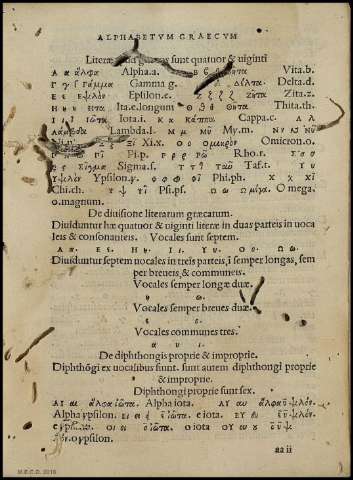 ALPHABETVM GRAECVM
Literæ græcæ sunt quatuor & uiginti
Α α ἄλφα Alpha.a. Β β ϐ Vita.b.
Γ γ γάμμα Gamma g. Δ δ Δέλτα. Delta.d.
Ε ε ἐψιλόν Epsilon.e. Ζ ζ ζῆτα Zita.z.
Η η ἦτα Ita.e.longum Θ θ θῆτα Thita.th.
Ι ι ἰῶτα Iota.i. Κ κ κάππα Cappa.c. Λ λ
λάμβδα Lambda.l. Μ μ μῦ My.m. Ν ν νῦ
Ξ ξ ξῖ Xi.x. Ο ο ὀμικρόν Omicron.o.
Π π πῖ Pi.p. Ρ ρ ῥῶ Rho.r. Σ σ
σίγμα Sigma.s. Τ τ ταῦ Taf.t. Υ υ
ὐψιλόν Ypsilon.y. Φ φ φῖ Phi.ph. Χ χ χῖ
Chi.ch. Ψ ψ ψῖ Psi.ps. Ω ω ὠμέγα. O mega.
o.magnum.
De diuisione literarum græcarum.
Diuiduntur hæ quatuor & uiginti literæ in duas parteis in uoca
leis & consonanteis. Vocales sunt septem.
Α α. Ε ε. Η η. Ι ι. Υ υ. Ο ο. Ω ω.
Diuiduntur septem uocales in treis parteis, i semper longas, sem
per breueis, & communeis.
Vocales semper longæ duæ.
η ω.
Vocales semper breues duæ.
ε ο.
Vocales communes tres.
α υ ι.
De diphthongis proprie & improprie.
Diphthõgi ex uocalibus fiunt. sunt autem diphthongi proprie
& improprie.
Diphthongi proprie sunt sex.
ΑΙ αι ἄλφα ἰῶτα. Alpha iota. ΑΥ αυ ἄλφα ὐψιλόν.
Alpha ypsilon. ΕΙ ει ἐ ἰῶτα. e iota. ΕΥ ευ ἐ ὐψιλόν
e ypsilon. ΟΙ οι ὀ ἰῶτα. o iota ΟΥ ου ὀ ὐψι
λόν. o ypsilon.
aa ii
M.E.C.D. 2016